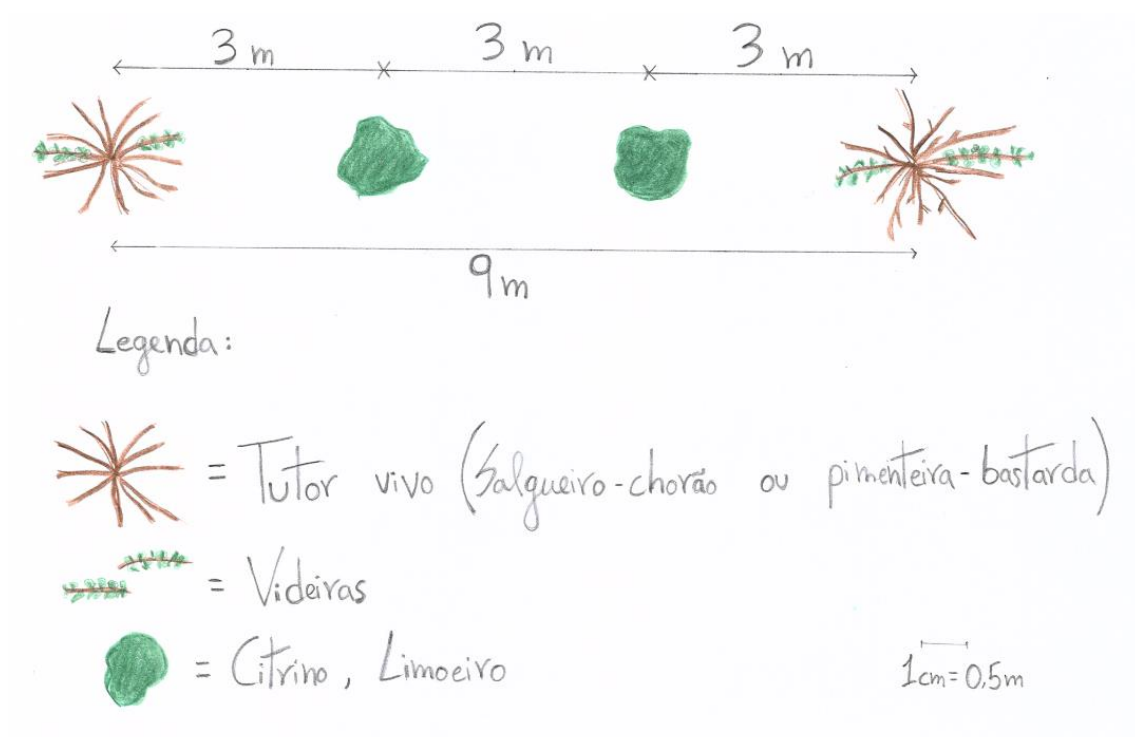 3 m 3 m 3 m
9 m
Legenda:
= Tutor vivo (Salgueiro-chorão ou pimenteira-bastarda)
= Videiras
= Citrino, Limoeiro
1cm=0,5m